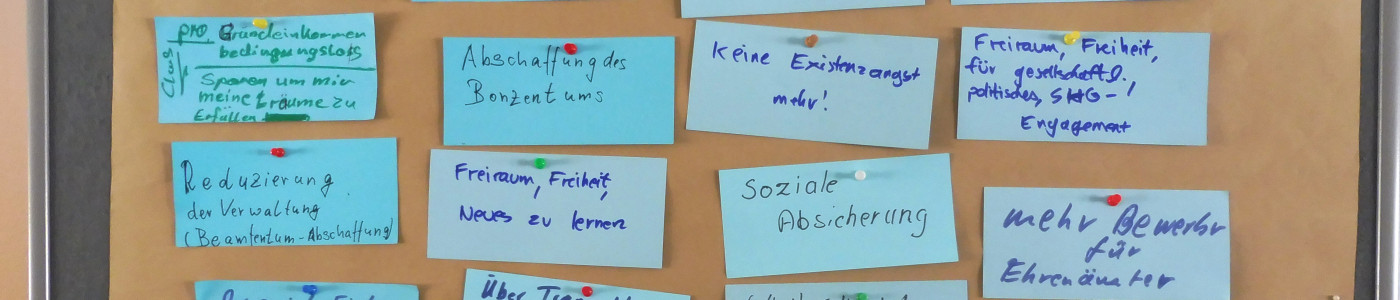 pro. Grundeinkommen
bedingungslos
Claus
Sparen um mir
meine träume zu
Erfüllen
Abschaffung des
Bonzentums
Keine Existenzangst
mehr!
Freiraum, Freiheit,
für gesellschaftl.,
politisches, SHG-!
Engagement
Reduzierung
der Verwaltung
(Beamtentum-Abschaffung)
Freiraum, Freiheit,
Neues zu lernen
Soziale
Absicherung
mehr Bewerbr
für
Ehrenämter
Über